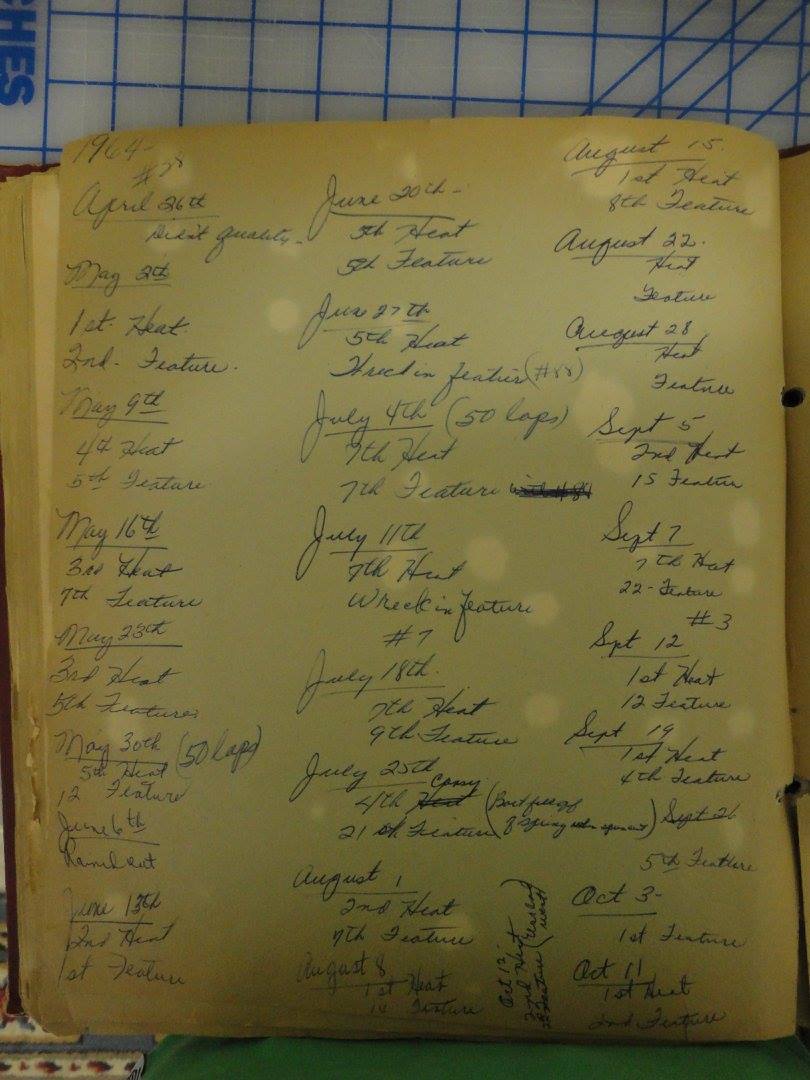 CHES
1964-
April 26th
Didn't Qualify-
May 2th
1st. Heat.
2nd- Feature.
May 9th
4th Heat
5th Feature
May 16th
3rd Heat
7th Feature
May 23th
3rd Heat
5th Features
May 30th (50 laps)
5th Heat
12 Feature
June 6th
Rained out
June 13th
2nd Heat
1st Feature
June 20th-
5th Heat
5th Feature
June 27th
5th Heat
Wreck in feature (#88)
July 4th (50 laps)
7th Heat
7th Feature
July 11th
7th Heat
Wreck in feature
#7
July 18th.
7th Heat
9th Feature
July 25th
4th Heat Consy
21 Feature
August 1
2nd Heat
7th Feature
August 8
1st Heat
14 Feature
Oct 12-
2nd Heat
Feature
August 15.
1st Heat
8th Feature
August 22.
Heat
Feature
August 28
Heat
Feature
Sept 5
2nd Heat
15 Feature
Sept 7
7th Heat
22-Feature
#3
Sept 12
1st Heat
12 Feature
Sept 19
1st Heat
4th Feature
Sept 26
5th Feature
Oct 3-
1st Feature
Oct 11
1st Heat
2nd Feature